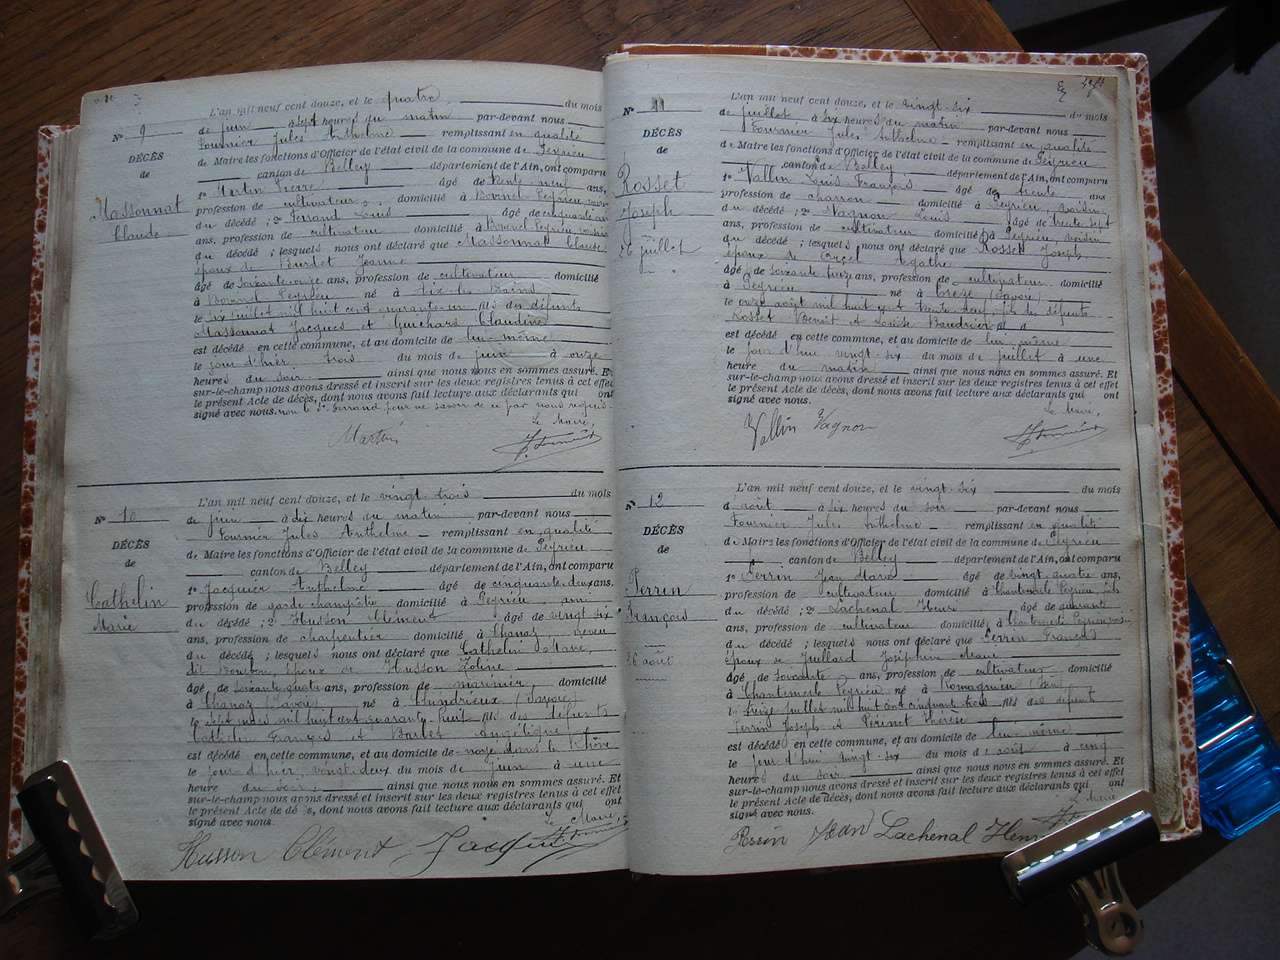 N° 9
DÉCÈS
de
Massonnat
Claude
L'an mil neuf cent douze, et le quatre du mois
de juin à sept heures du matin par-devant nous
Fournier Jules Anthelme remplissant en qualité
de Maire les fonctions d'Officier de l'état civil de la commune de Peyrieu
canton de Belley département de l'Ain, ont comparu
1° Martin Pierre âgé de trente neuf ans,
profession de cultivateur, domicilié à Peyrieu
du décédé ; 2° Ferrand Louis âgé de cinquante
ans, profession de cultivateur domicilié à Peyrieu, voisin
du décédé ; lesquels nous ont déclaré que Massonnat Claude
époux de Bourdet Jeanne
âgé de soixante onze ans, profession de cultivateur domicilié
à Peyrieu né à Aix les Bains
le six juillet mil huit cent quarante un fils des défunts
Massonnat Jacques et Guichard Claudine
est décédé en cette commune, et au domicile de lui-même
le jour d'hier, trois du mois de juin à onze
heures du soir ainsi que nous nous en sommes assuré. Et
sur-le-champ nous avons dressé et inscrit sur les deux registres tenus à cet effet
le présent Acte de décès, dont nous avons fait lecture aux déclarants qui ont
signé avec nous. non le sr Ferrand pour ne savoir de ce par nous requis
Le Maire,
Martin
J. Fournier
N° 10
DÉCÈS
de
Cathelin
Marie
L'an mil neuf cent douze, et le vingt trois du mois
de juin à dix heures du matin par-devant nous
Fournier Jules Anthelme remplissant en qualité
de Maire les fonctions d'Officier de l'état civil de la commune de Peyrieu
canton de Belley département de l'Ain, ont comparu
1° Jacquier Anthelme âgé de cinquante deux ans,
profession de garde champêtre domicilié à Peyrieu, ami
du décédé ; 2° Husson Clément âgé de vingt six
ans, profession de charpentier domicilié à Chanaz, neveu
du décédé ; lesquels nous ont déclaré que Cathelin Marie,
dit Bourbon, époux de Husson
âgé de soixante quatre ans, profession de marinier, domicilié
à Chanaz (Savoie) né à Chindrieux (Savoie)
le sept mars mil huit cent quarante huit fils des défunts
Cathelin François et Barlet Angélique
est décédé en cette commune, et au domicile de noyé dans le Rhône
le jour d'hier, vingt-deux du mois de juin à une
heure du soir, ainsi que nous nous en sommes assuré. Et
sur-le-champ nous avons dressé et inscrit sur les deux registres tenus à cet effet
le présent Acte de décès, dont nous avons fait lecture aux déclarants qui ont
signé avec nous.
Le Maire,
Husson Clément Jacquier J. Fournier
N° 11
DÉCÈS
de
Rosset
Joseph
26 juillet
L'an mil neuf cent douze, et le vingt-six du mois
de juillet à six heures du matin par-devant nous
Fournier Jules Anthelme remplissant en qualité
de Maire les fonctions d'Officier de l'état civil de la commune de Peyrieu
canton de Belley département de l'Ain, ont comparu
1° Vallin Louis François âgé de trente ans
profession de charron domicilié à Peyrieu, voisin
du décédé ; 2° Vagnon Louis âgé de trente sept
ans, profession de cultivateur domicilié à Peyrieu, voisin
du décédé ; lesquels nous ont déclaré que Rosset Joseph
époux de Agathe
âgé de soixante treize ans, profession de cultivateur domicilié
à Peyrieu né à (Savoie)
le onze août mil huit cent trente deux fils des défunts
Rosset Benoit et Louise Baudrier
est décédé en cette commune, et au domicile de lui-même
le jour d'hui vingt-six du mois de juillet à une
heure du matin ainsi que nous nous en sommes assuré. Et
sur-le-champ nous avons dressé et inscrit sur les deux registres tenus à cet effet
le présent Acte de décès, dont nous avons fait lecture aux déclarants qui ont
signé avec nous.
Le Maire,
Vallin Vagnon
J. Fournier
N° 12
DÉCÈS
de
Perrin
François
26 août
L'an mil neuf cent douze, et le vingt-six du mois
d'août à dix heures du soir par-devant nous
Fournier Jules Anthelme remplissant en qualité
de Maire les fonctions d'Officier de l'état civil de la commune de Peyrieu
canton de Belley département de l'Ain, ont comparu
1° Perrin Jean Marie âgé de vingt quatre ans,
profession de cultivateur domicilié à Chantemerle Peyrieu, fils
du décédé ; 2° Lachenal Henri âgé de quarante
ans, profession de cultivateur, domicilié à Chantemerle Peyrieu
du décédé ; lesquels nous ont déclaré que Perrin François
époux de Juillard Joséphine Marie
âgé de soixante ans, profession de cultivateur domicilié
à Chantemerle Peyrieu né à Romagnieu
le treize juillet mil huit cent cinquante trois fils des défunts
Perrin Joseph et Périnet Thérèse
est décédé en cette commune, et au domicile de lui-même
le jour d'hui vingt-six du mois de août à cinq
heures du soir ainsi que nous nous en sommes assuré. Et
sur-le-champ nous avons dressé et inscrit sur les deux registres tenus à cet effet
le présent Acte de décès, dont nous avons fait lecture aux déclarants qui ont
signé avec nous.
Le Maire
Perrin Jean Lachenal Henri